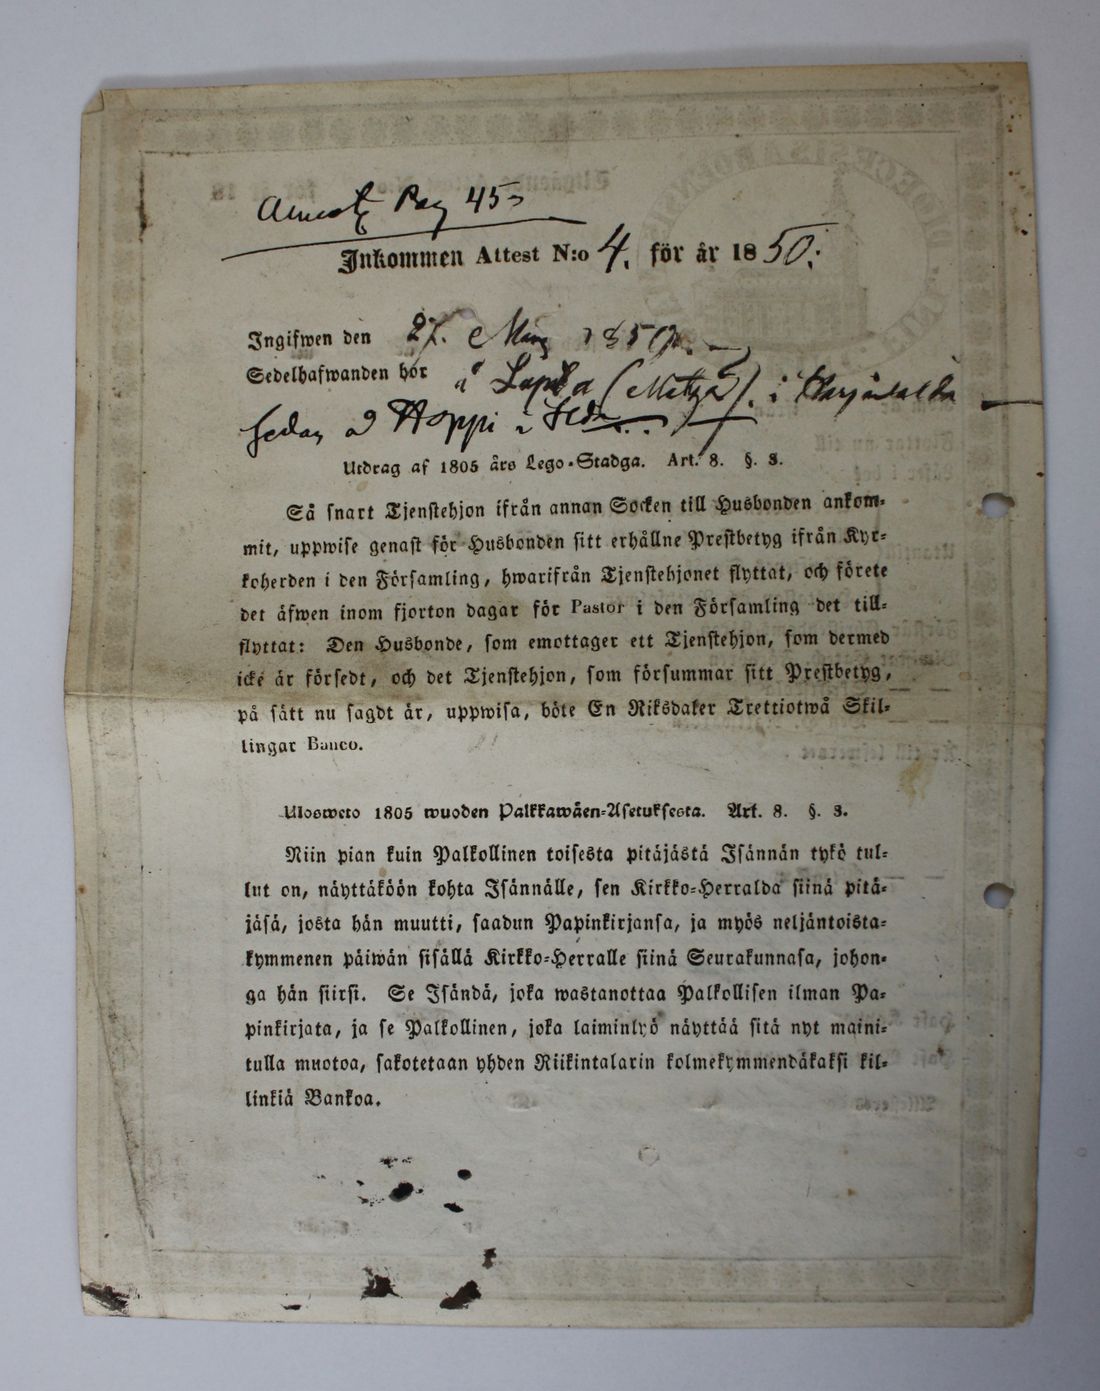 Pag 45
Inkommen Attest N:o 4. för år 1850.
Ingifwen den 27. Mars 1850.
Sedelhafwanden hör å Lapila (
sedan å Hoppi i
Utdrag af 1805 års Lego-Stadga. Art. 8. §. 3.
Så snart Tjenstehjon ifrån annan Socken till Husbonden ankom-
mit, uppwise genast för Husbonden sitt erhållne Prestbetyg ifrån Kyr-
koherden i den Församling, hwarifrån Tjenstehjonet flyttat, och förete
det äfwen inom fjorton dagar för Pastor i den Församling det till-
flyttat: Den Husbonde, som emottager ett Tjenstehjon, som dermed
icke är försedt, och det Tjenstehjon, som försummar sitt Prestbetyg,
på sätt nu sagdt är, uppwisa, böte En Riksdaler Trettiotwå Skil-
lingar Banco.
Ulosweto 1805 wuoden Palkkawäen-Asetuksesta. Art. 8. §. 3.
Niin pian kuin Palkollinen toisesta pitäjästä Isännän tykö tul-
lut on, näyttäköön kohta Isännälle, sen Kirkko-Herralda siinä pitä-
jäsä, josta hän muutti, saadun Papinkirjansa, ja myös neljäntoista-
kymmenen päiwän sisällä Kirkko-Herralle siinä Seurakunnasa, johon-
ga hän siirsi. Se Isändä, joka wastanottaa Palkollisen ilman Pa-
pinkirjata, ja se Palkollinen, joka laiminlyö näyttää sitä nyt maini-
tulla muotoa, sakotetaan yhden Riikintalarin kolmekymmendäkaksi kil-
linkiä Bankoa.